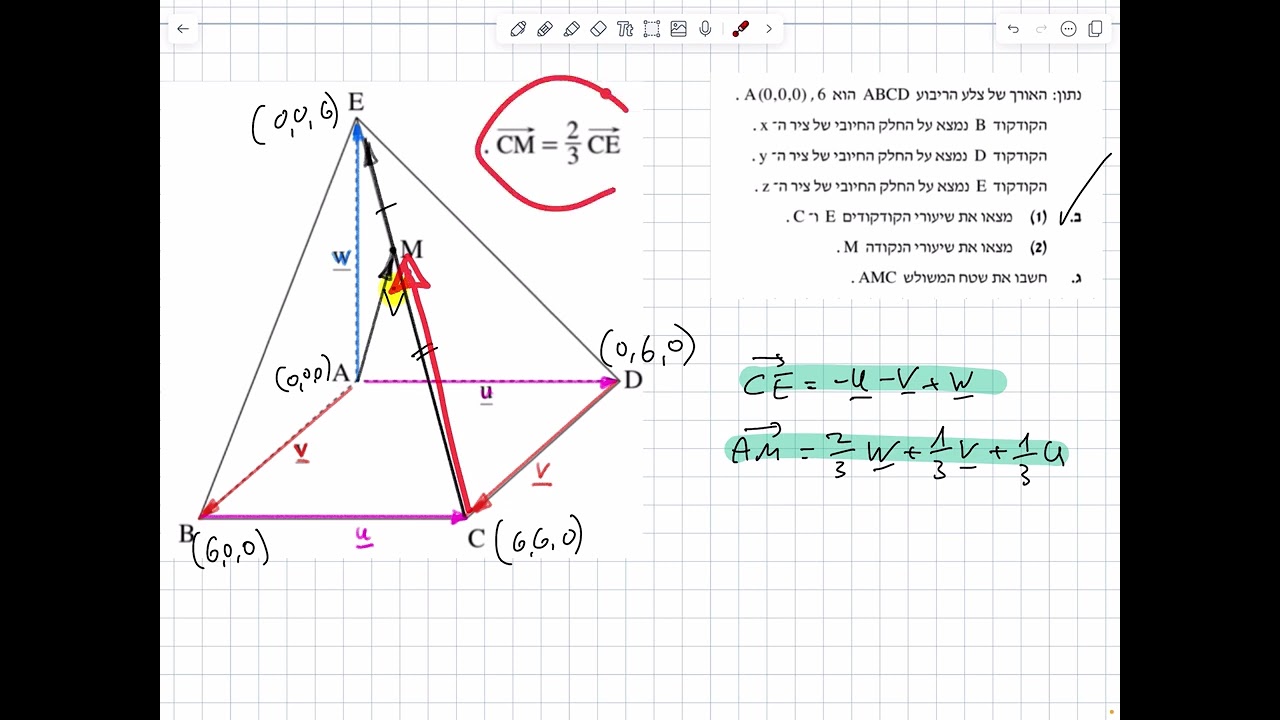 Tt
E
(0,0,6)
. CM = 2/3 CE
נתון: האורך של צלע הריבוע ABCD הוא 6, A(0,0,0).
הקודקוד B נמצא על החלק החיובי של ציר ה־ x.
הקודקוד D נמצא על החלק החיובי של ציר ה־ y.
הקודקוד E נמצא על החלק החיובי של ציר ה־ z.
ב. (1) מצאו את שיעורי הקודקודים E ו־ C.
(2) מצאו את שיעורי הנקודה M.
ג. חשבו את שטח המשולש AMC.
w
M
(0,0,0) A
(0,6,0)
D
u
v
v
B (6,0,0)
u
C (6,6,0)
CE = -u - v + w
AM = 2/3 w + 1/3 v + 1/3 u